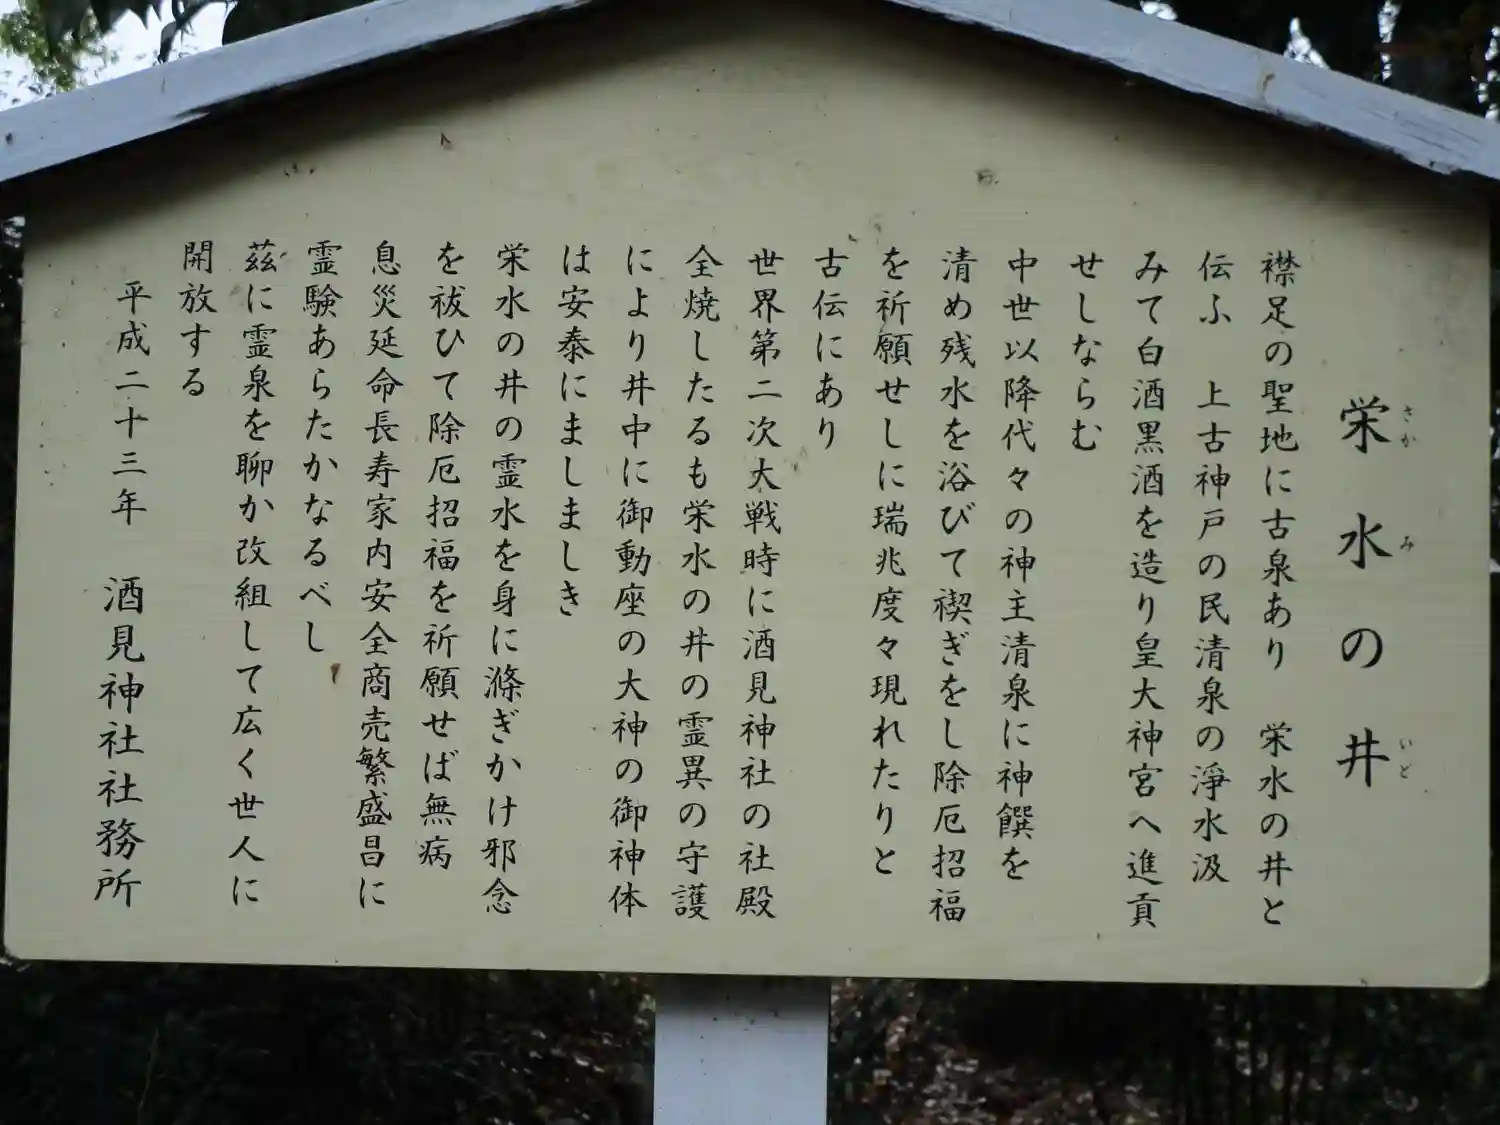 栄水の井
さか み いど
襟足の聖地に古泉あり　栄水の井と
伝ふ　上古神戸の民清泉の淨水汲
みて白酒黒酒を造り皇大神宮へ進貢
せしならむ
中世以降代々の神主清泉に神饌を
清め残水を浴びて禊ぎをし除厄招福
を祈願せしに瑞兆度々現れたりと
古伝にあり
世界第二次大戦時に酒見神社の社殿
全焼したるも栄水の井の霊異の守護
により井中に御動座の大神の御神体
は安泰にましましき
栄水の井の霊水を身に滌ぎかけ邪念
を祓ひて除厄招福を祈願せば無病
息災延命長寿家内安全商売繁盛昌に
霊験あらたかなるべし
茲に霊泉を聊か改組して広く世人に
開放する
平成二十三年　酒見神社社務所